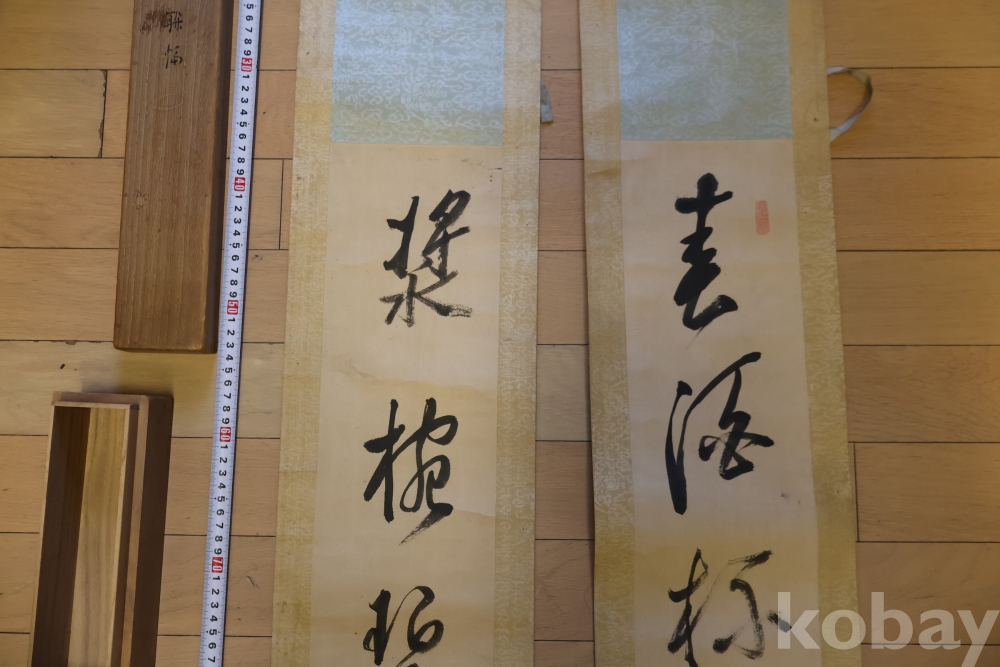 春酒杯
漿椀碧
聯幅
5 6 7 8 9 30 1 2 3 4 5 6 7 8 9 40 1 2 3 4 5 6 7 8 9 50 1 2 3 4 5 6 7 8 9 60 1 2 3 4 5 6 7 8 9 70 1 2 3 4 5 6 7
kobay